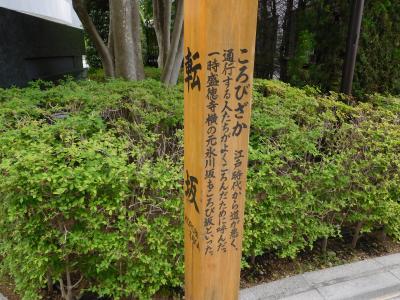 ころびざか
江戸時代から道が悪く、
通行する人たちがよくころんだために呼んだ。
一時盛徳寺横の元氷川坂もころび坂といった。
転坂